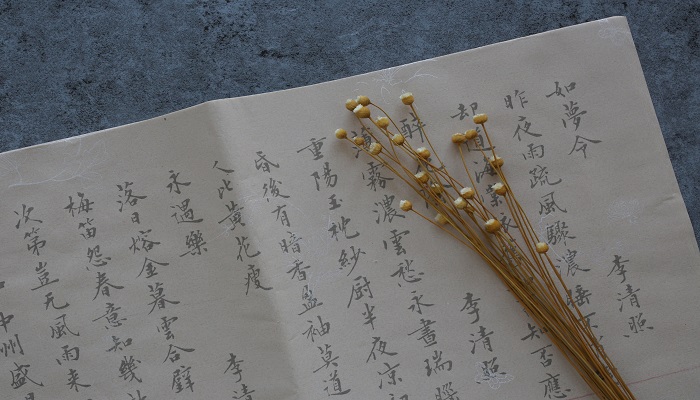 如夢令 李清照
昨夜雨疏風驟濃睡不
却道海棠依 知否應
醉 李清照
薄霧濃雲愁永晝瑞
重陽玉枕紗厨半夜凉初
昏後有暗香盈袖莫道
人比黃花瘦
永遇樂 李清
落日熔金暮雲合璧
梅笛怨春意知幾
次第豈无風雨来
中州盛